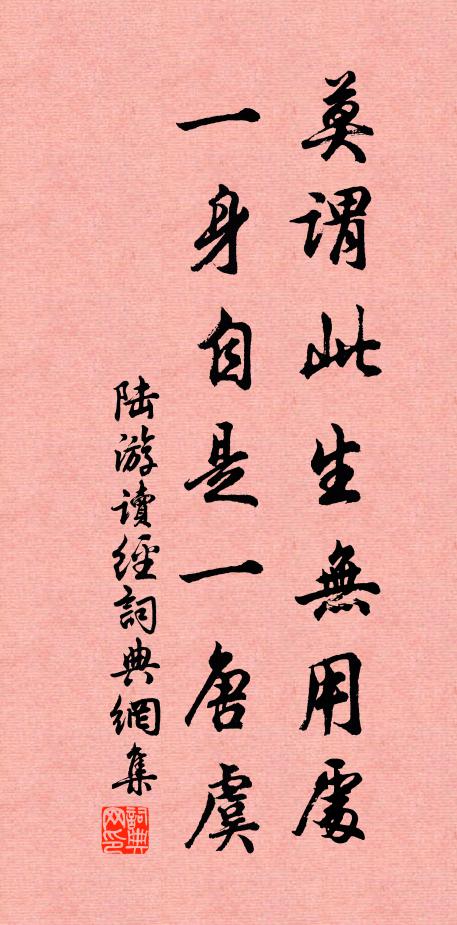 莫謂此生無用處
一身自是一唐虞
陸游讀經詞典網集
詞典网印